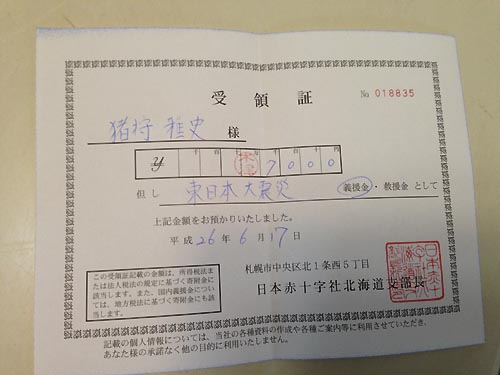 受領証
No 018835
猪狩 雅史 様
¥ 7000
但し 東日本大震災 義援金・救援金 として
上記金額をお預かりいたしました。
平成 26 年 6 月 17 日
札幌市中央区北1条西5丁目
日本赤十字社北海道支部長
この受領証記載の金額は、所得税法ま
たは法人税法の規定に基づく寄附金に
該当します。また、国内義援金につい
ては、地方税法に基づく寄附金にも該
当します。
記載の個人情報については、当社の各種資料の作成や各種ご案内等に利用させていただき、
あなた様の承諾なく他の目的に利用いたしません。